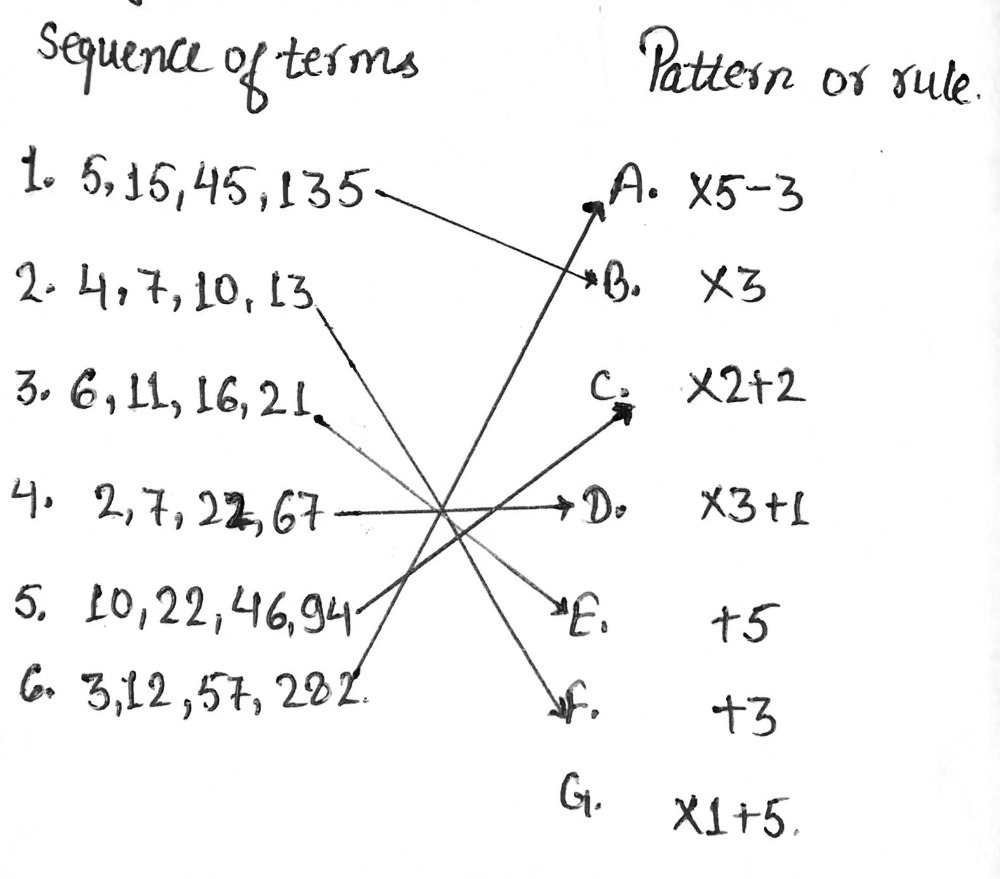 Sequence of terms    Pattern or rule.
1. 5, 15, 45, 135    A. X5-3
2. 4, 7, 10, 13    B. X3
3. 6, 11, 16, 21    C. X2+2
4. 2, 7, 22, 67    D. X3+1
5. 10, 22, 46, 94    E. +5
6. 3, 12, 57, 282.    F. +3
G. X1+5.